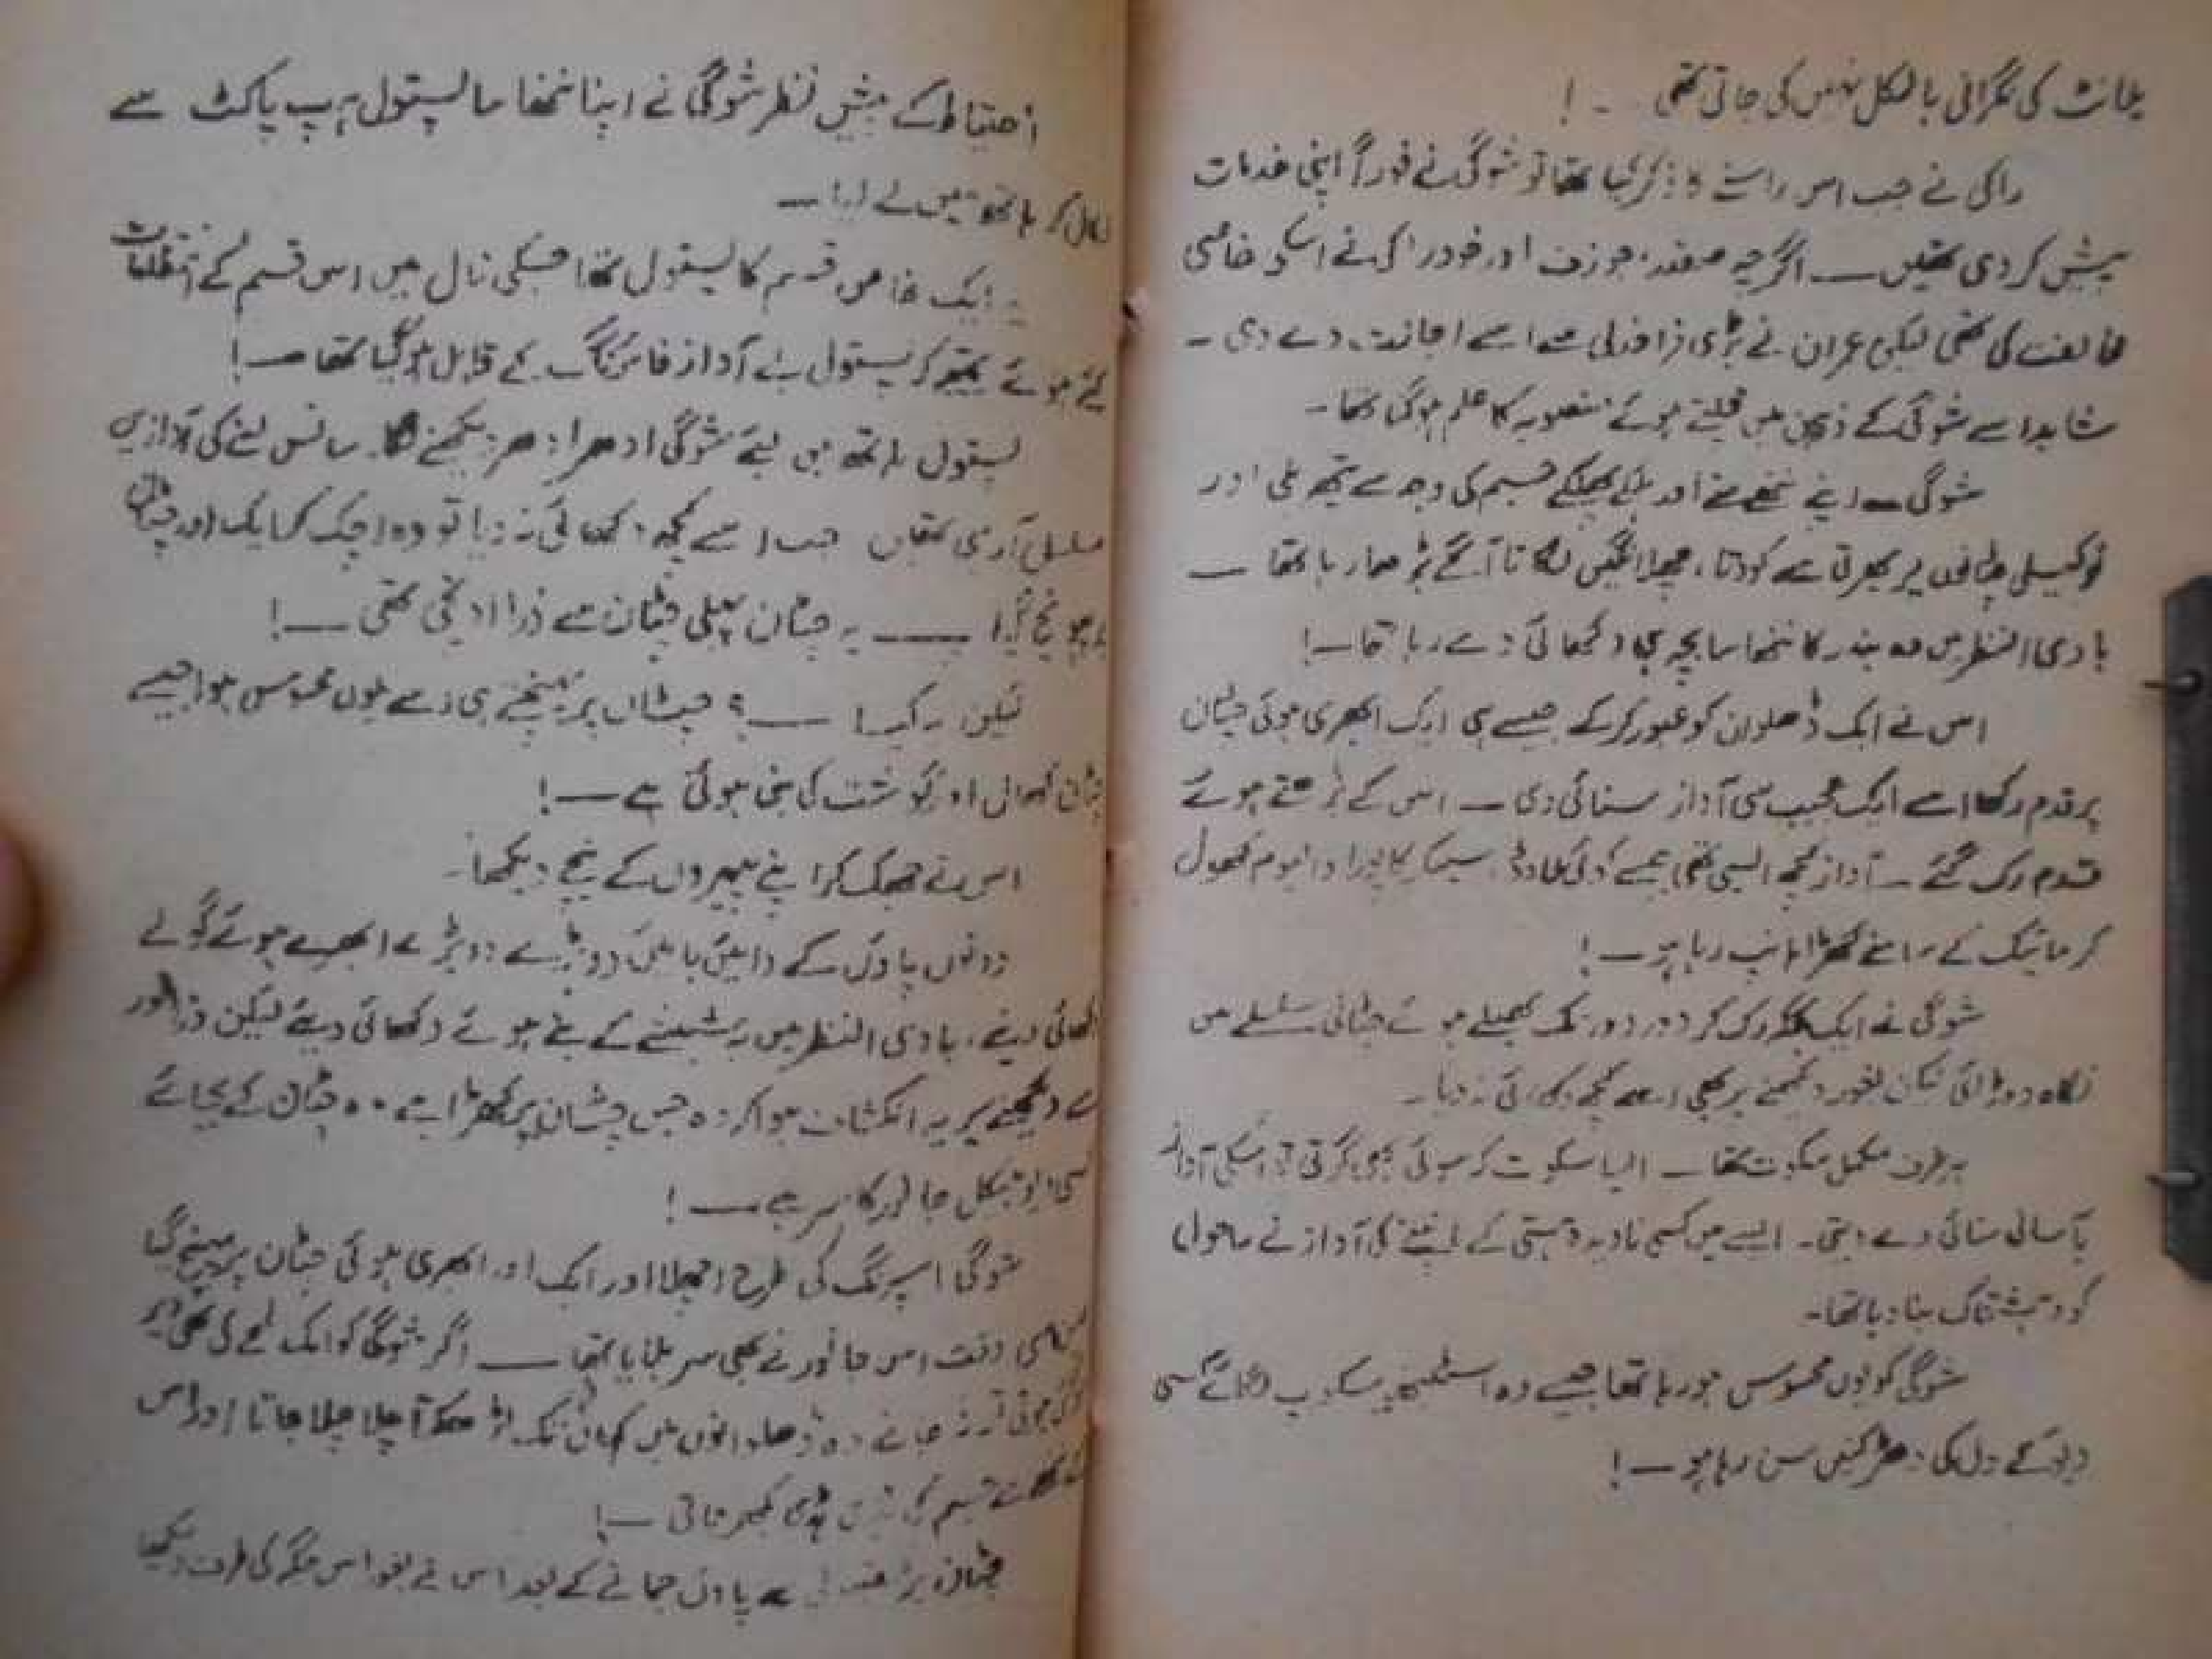 کی نگرانی بالکل نہیں کی جاتی تھی ۔ !
راکی نے جب اس راستے کا ذکر کیا تھا تو شوگی نے فوراً اپنی خدمات
پیش کر دی تھیں ــ اگرچہ صفدر، جوزف اور خود راکی نے اسکی خاصی
مخالفت کی تھی لیکن عمران نے بڑی فراخدلی سے اسے اجازت دے دی ۔
شاید اسے شوگی کے ذہن میں پلتے ہوئے منصوبہ کا علم ہو گیا تھا ۔
شوگی ــ اپنے ننھے منے اور ہلکے پھلکے جسم کی وجہ سے پتھریلی اور
نوکیلی چٹانوں پر پھرتی سے کودتا، چھلانگیں لگاتا آگے بڑھا جا رہا تھا ــ
بادی النظر میں وہ بندر کا ننھا سا بچہ ہی دکھائی دے رہا تھا ــ !
اس نے ایک ڈھلوان کو عبور کر کے جیسے ہی ایک ابھری ہوئی چٹان
پر قدم رکھا اسے ایک عجیب سی آواز سنائی دی ــ اس کے بڑھتے ہوئے
قدم رک گئے ــ آواز کچھ ایسی تھی جیسے کوئی کا پورا والیوم کھول
کر مائیک کے سامنے کھڑا ہانپ رہا ہو ــ !
شوگی نے ایک جگہ رک کر دور دور تک پھیلے ہوئے چٹانی سلسلے میں
نگاہ دوڑائی لیکن بغور دیکھنے پر بھی اسے کچھ دکھائی نہ دیا ۔
ہر طرف مکمل سکوت تھا ــ ایسا سکوت کہ سوئی بھی گرتی تو اسکی آواز
بآسانی سنائی دے جاتی ۔ ایسے میں کسی نادیدہ ہستی کے ہانپنے کی آواز نے ماحول
کو دہشتناک بنا دیا تھا ۔
شوگی کو یوں محسوس ہو رہا تھا جیسے وہ اسٹیتھیسکوپ لگائے کسی
دیو کے دل کی دھڑکنیں سن رہا ہو ــ !
احتیاط کے پیش نظر شوگی نے اپنا ننھا سا پستول ہپ پاکٹ سے
نکال کر ہاتھ میں لے لیا ــ
یہ ایک خاص قسم کا پستول تھا جسکی نال میں اس قسم کے انتظامات
کئے ہوئے تھے کہ پستول بے آواز فائرنگ کے قابل ہو گیا تھا ــ !
پستول ہاتھ میں لیئے شوگی ادھر ادھر دیکھنے لگا۔ سانس لینے کی آوازیں
مسلسل آ رہی تھیں جب اسے کچھ دکھائی نہ دیا تو وہ اچک کر ایک اور چٹان
پر پہونچ گیا ــــ یہ چٹان پہلی چٹان سے ذرا اونچی تھی ــ !
لیکن یہ کیا ــ ؟ چٹان پر پہنچتے ہی اسے یوں محسوس ہوا جیسے
چٹان کھال اور گوشت کی بنی ہوئی ہے ــ !
اس نے جھک کر اپنے پیروں کے نیچے دیکھا ۔
دونوں پاؤں کے دائیں بائیں دو بڑے بڑے ابھرے ہوئے گولے
دکھائی دیئے، بادی النظر میں یہ شیشے کے بنے ہوئے دکھائی دیئے لیکن ذرا غور
سے دیکھنے پر یہ انکشاف ہوا کہ وہ جس چٹان پر کھڑا ہے وہ چٹان کے بجائے
کسی دیو ہیکل جانور کا سر ہے ــ !
شوگی اسپرنگ کی طرح اچھلا اور ایک اور ابھری ہوئی چٹان پر پہنچ گیا
اسی وقت اس جانور نے بھی سر ہلایا تھا ــ اگر شوگی کو ایک لمحے کی بھی دیر
ہو گئی ہوتی تو نہ جانے وہ ڈھلوانوں میں کہاں تک لڑھکتا چلا جاتا اور اس
کے جسم کی ہڈی بکھر جاتی ــ !
چٹان پر مضبوطی سے پاؤں جمانے کے بعد اس نے بغور اس جگہ کی طرف دیکھا